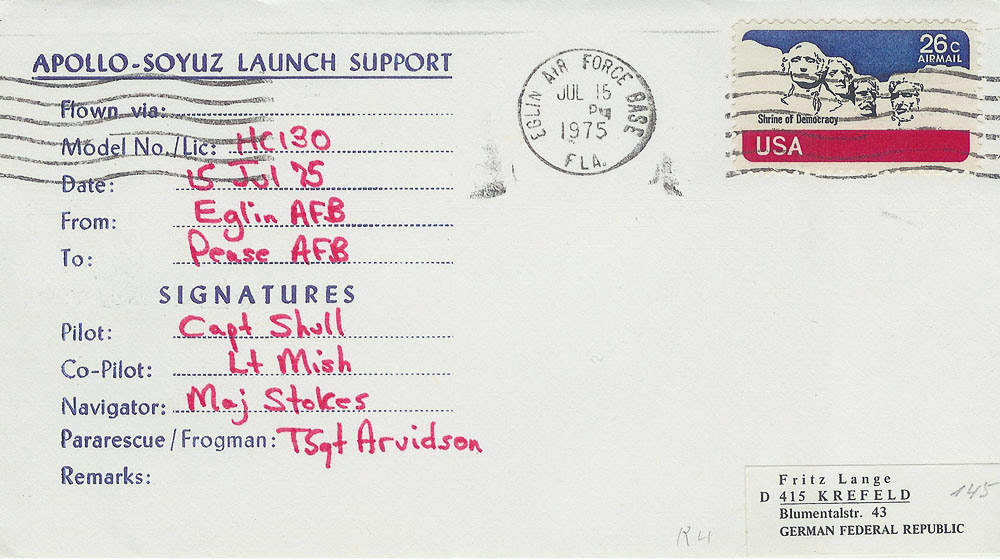 APOLLO-SOYUZ LAUNCH SUPPORT
Flown via:
Model No./Lic: HC130
Date: 15 Jul 75
From: Eglin AFB
To: Pease AFB
SIGNATURES
Pilot: Capt Shull
Co-Pilot: Lt Mish
Navigator: Maj Stokes
Pararescue/Frogman: TSgt Arvidson
Remarks:
EGLIN AIR FORCE BASE
JUL 15
PM
1975
FLA.
26c
AIRMAIL
Shrine of Democracy
USA
Fritz Lange
D 415 KREFELD
Blumentalstr. 43
GERMAN FEDERAL REPUBLIC
145